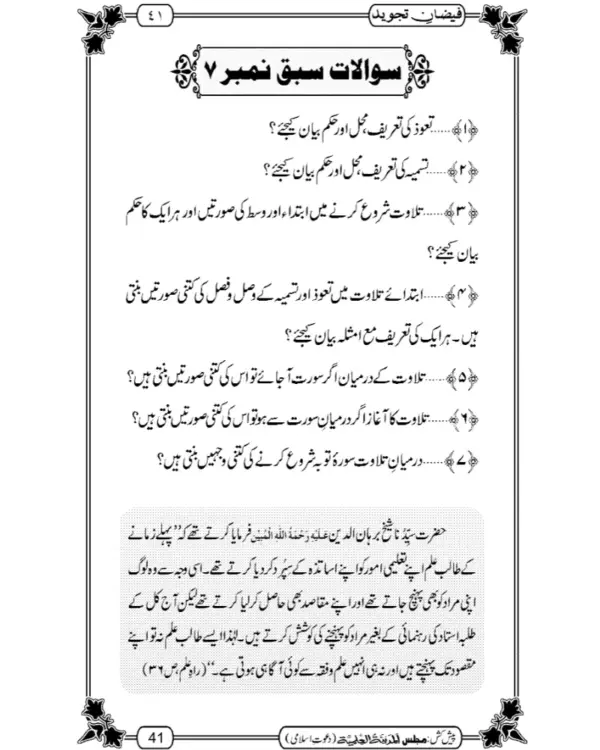 فیضانِ تجوید
۴۱
سوالات سبق نمبر ۷
﴿۱﴾.....تعوذ کی تعریف، محل اور حکم بیان کیجئے؟
﴿۲﴾.....تسمیہ کی تعریف، محل اور حکم بیان کیجئے؟
﴿۳﴾.....تلاوت شروع کرنے میں ابتداء اور وسط کی صورتیں اور ہر ایک کا حکم
بیان کیجئے؟
﴿۴﴾.....ابتدائے تلاوت میں تعوذ اور تسمیہ کے وصل و فصل کی کتنی صورتیں بنتی
ہیں۔ ہر ایک کی تعریف مع امثلہ بیان کیجئے؟
﴿۵﴾.....تلاوت کے درمیان اگر سورت آجائے تو اس کی کتنی صورتیں بنتی ہیں؟
﴿۶﴾.....تلاوت کا آغاز اگر درمیانِ سورت سے ہو تو اس کی کتنی صورتیں بنتی ہیں؟
﴿۷﴾.....درمیانِ تلاوت سورۂ توبہ شروع کرنے کی کتنی وجہیں بنتی ہیں؟
حضرت سیّدنا شیخ برہان الدین عَلَیْہِ رَحْمَۃُ اللہِ الْمُبِیْن فرمایا کرتے تھے کہ ’’پہلے زمانے
کے طالب علم اپنے تعلیمی امور کو اپنے اساتذہ کے سپُرد کر دیا کرتے تھے۔ اسی وجہ سے وہ لوگ
اپنی مراد کو بھی پہنچ جاتے تھے اور اپنے مقاصد بھی حاصل کر لیا کرتے تھے لیکن آج کل کے
طلبہ استاد کی رہنمائی کے بغیر مراد کو پہنچنے کی کوشش کرتے ہیں۔ لہٰذا ایسے طالب علم نہ تو اپنے
مقصود تک پہنچتے ہیں اور نہ ہی انہیں علم و فقہ سے کوئی آگاہی ہوتی ہے۔‘‘ (راہِ علم، ص ۳۶)
پیش کش: مجلس المدینۃ العلمیۃ (دعوتِ اسلامی)
41